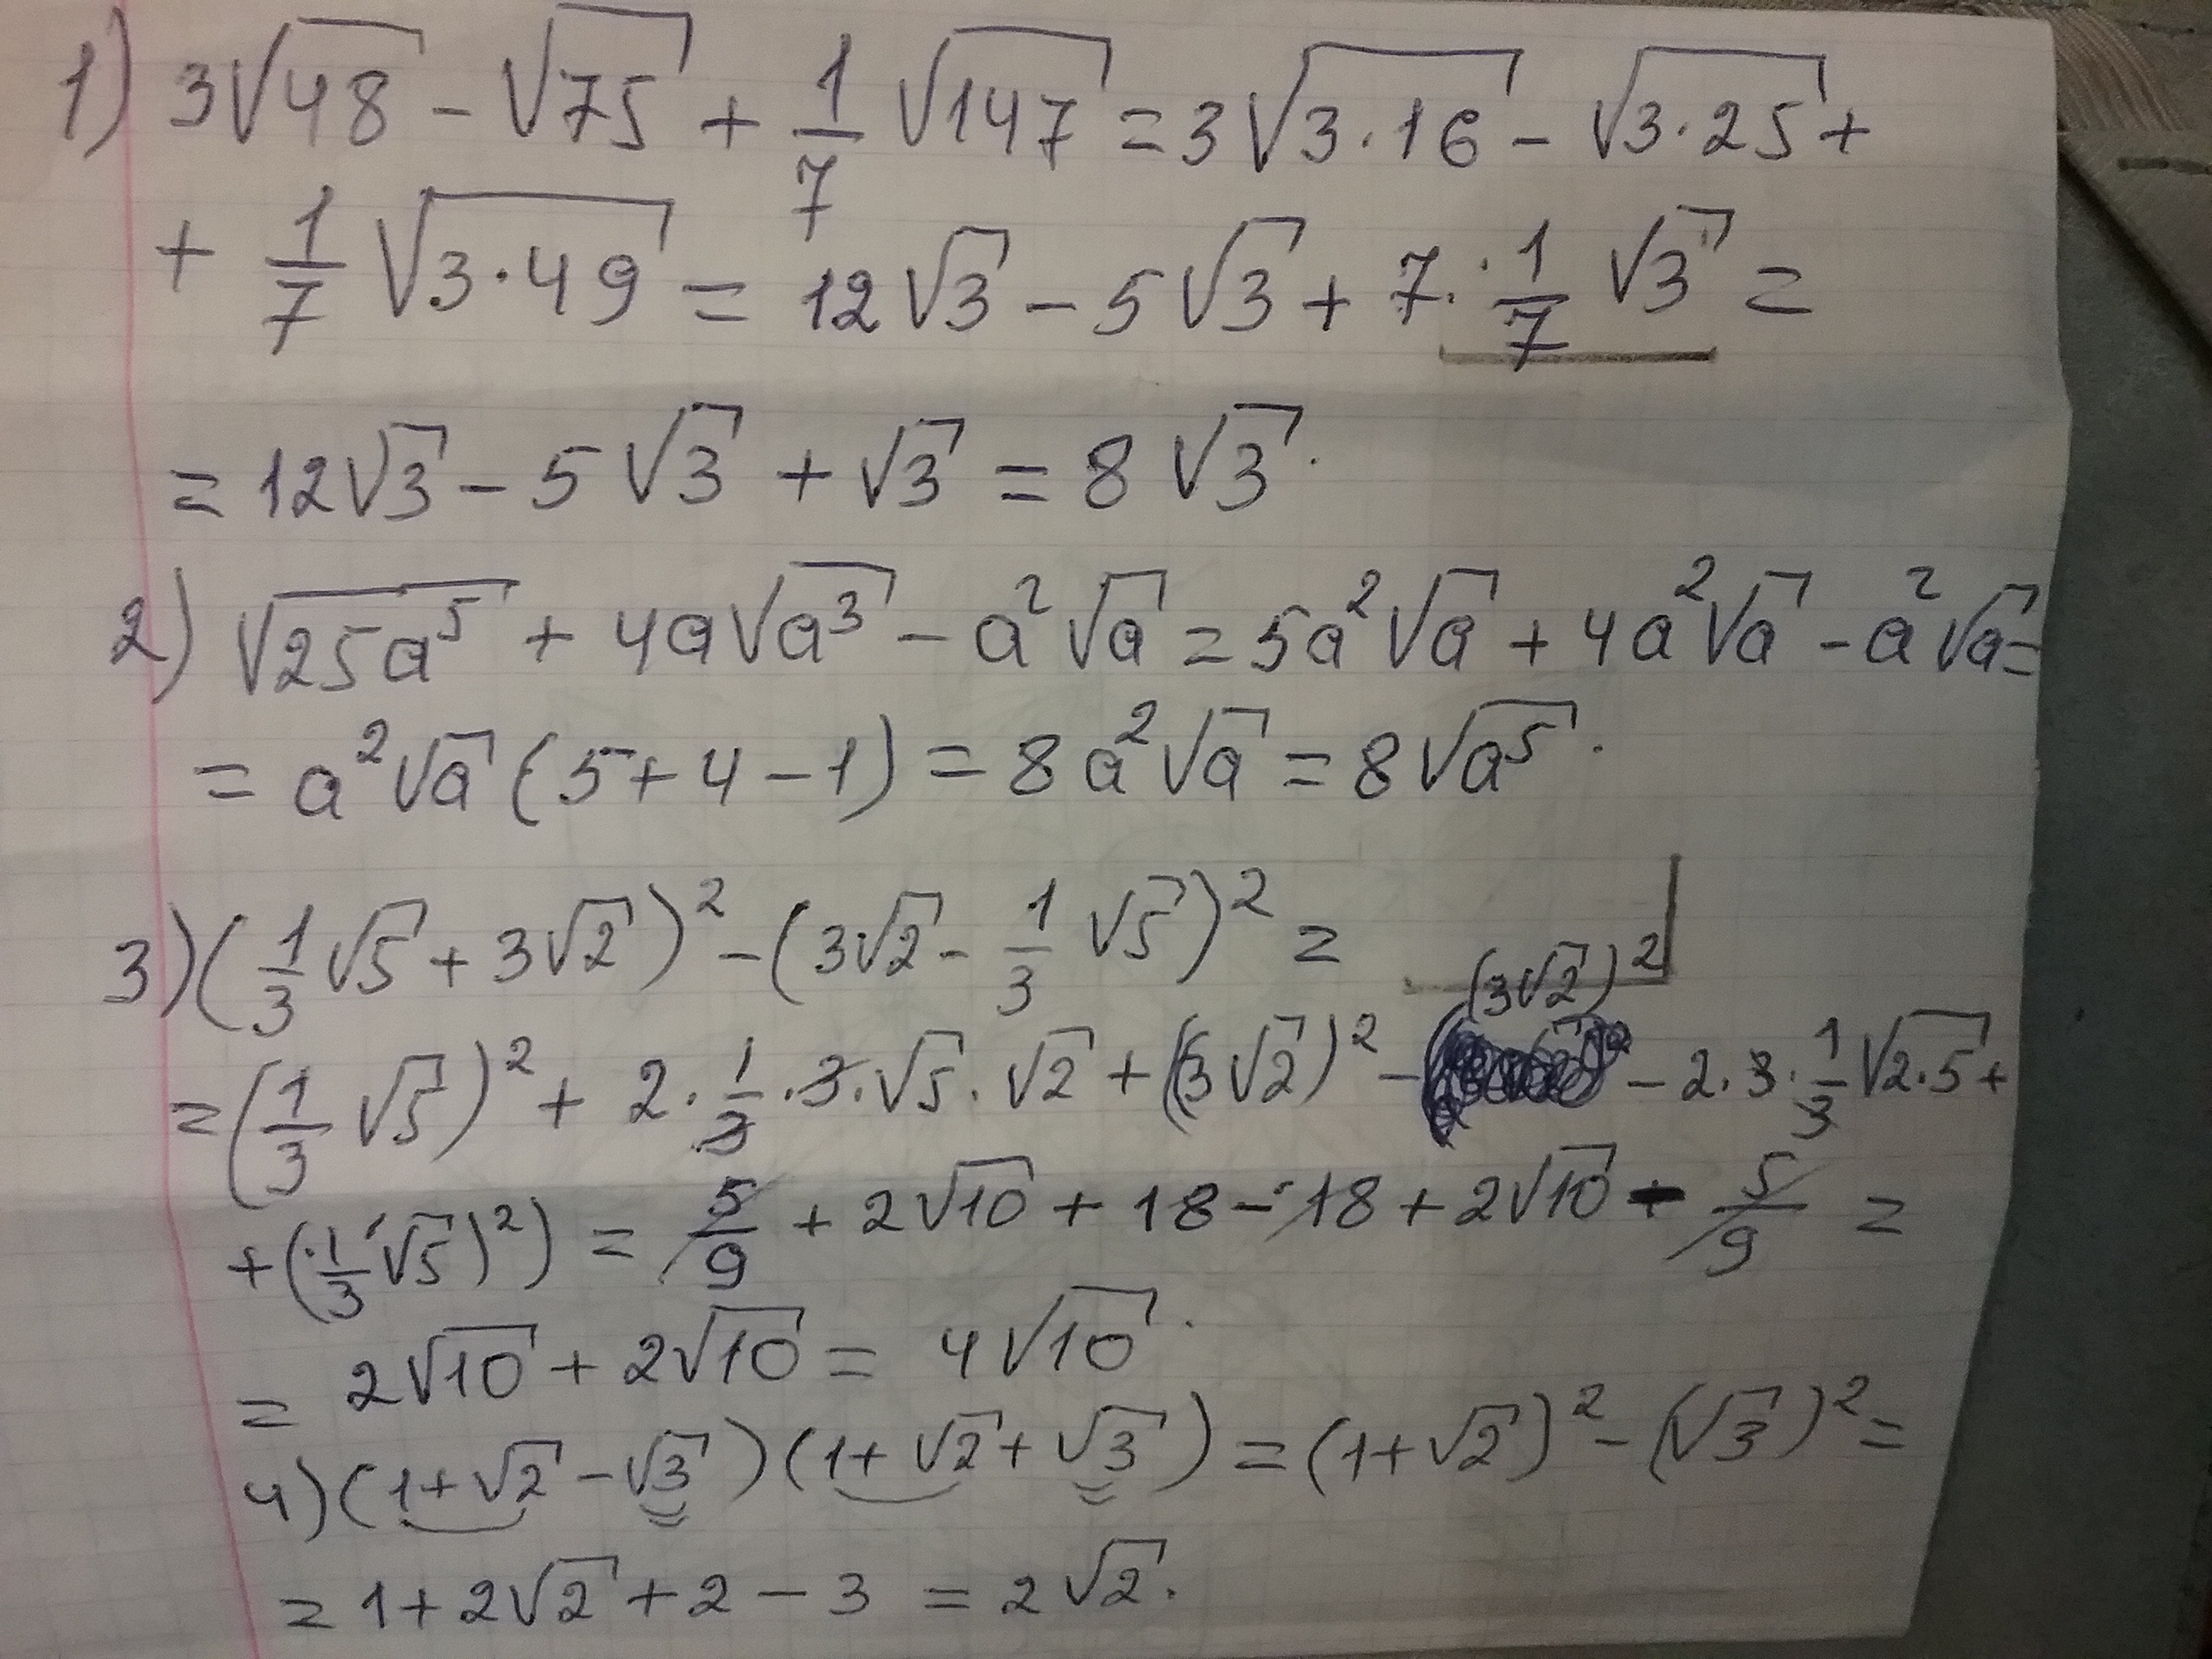 1) 3√48 - √75 + 1/7 √147 = 3√3·16 - √3·25 +
+ 1/7 √3·49 = 12√3 - 5√3 + 7·1/7 √3 =
= 12√3 - 5√3 + √3 = 8√3.
2) √25a⁵ + 4a√a³ - a²√a = 5a²√a + 4a²√a - a²√a =
= a²√a (5+4-1) = 8a²√a = 8√a⁵.
3) (1/3 √5 + 3√2)² - (3√2 - 1/3 √5)² =
= (1/3 √5)² + 2·1/3·3·√5·√2 + (3√2)² - ((3√2)² - 2·3·1/3 √2·5 +
+ (1/3 √5)²) = 5/9 + 2√10 + 18 - 18 + 2√10 - 5/9 =
= 2√10 + 2√10 = 4√10.
4) (1+√2-√3)(1+√2+√3) = (1+√2)² - (√3)² =
= 1+2√2+2-3 = 2√2.